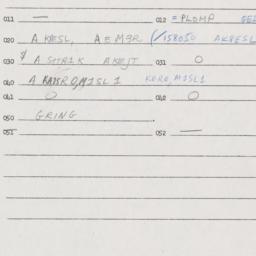 011 — 012 = PLOMP
020 A KESL, A E M3R (/158050 AKBESL
030 A SMA1K AKEJT 031 O
040 A R0,M1SL 1 KORO,M1SL1
041 O 042 O
050 GRING
051 052 —